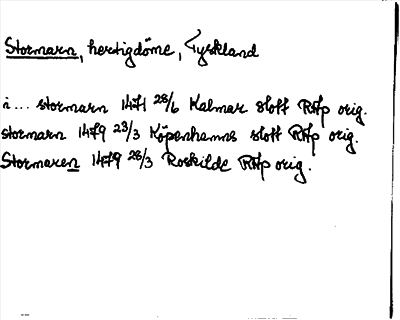 Stormarn, hertigdöme, Tyskland
i... stormarn 1471 28/6 Kalmar slott RAp orig.
stormarn 1479 23/3 Köpenhamns slott RAp orig.
Stormaren 1479 28/3 Roskilde RAp orig.